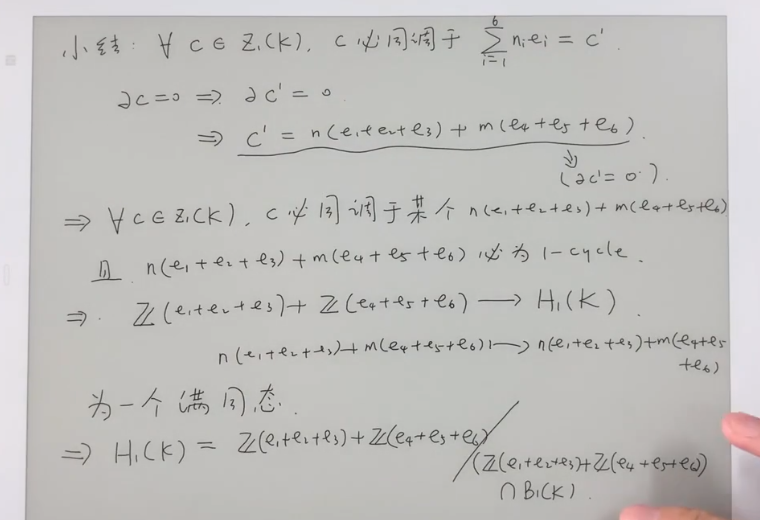 小结: ∀ c ∈ Z₁(K), c 必同调于 ∑_{i=1}^{6} nᵢeᵢ = c'.
∂c=0 ⇒ ∂c' = 0.
⇒ c' = n(e₁+e₂+e₃) + m(e₄+e₅+e₆).
⇓ (∂c'=0).
⇒ ∀c∈Z₁(K), c 必同调于某个 n(e₁+e₂+e₃)+m(e₄+e₅+e₆)
且 n(e₁+e₂+e₃)+m(e₄+e₅+e₆) 必为 1-cycle.
⇒. ℤ(e₁+e₂+e₃)+ℤ(e₄+e₅+e₆) ⟶ H₁(K).
n(e₁+e₂+e₃)+m(e₄+e₅+e₆) ⟼ n(e₁+e₂+e₃)+m(e₄+e₅
+e₆)
为一个满同态.
⇒ H₁(K) = ℤ(e₁+e₂+e₃)+ℤ(e₄+e₅+e₆)/
(ℤ(e₁+e₂+e₃)+ℤ(e₄+e₅+e₆))
∩ B₁(K).